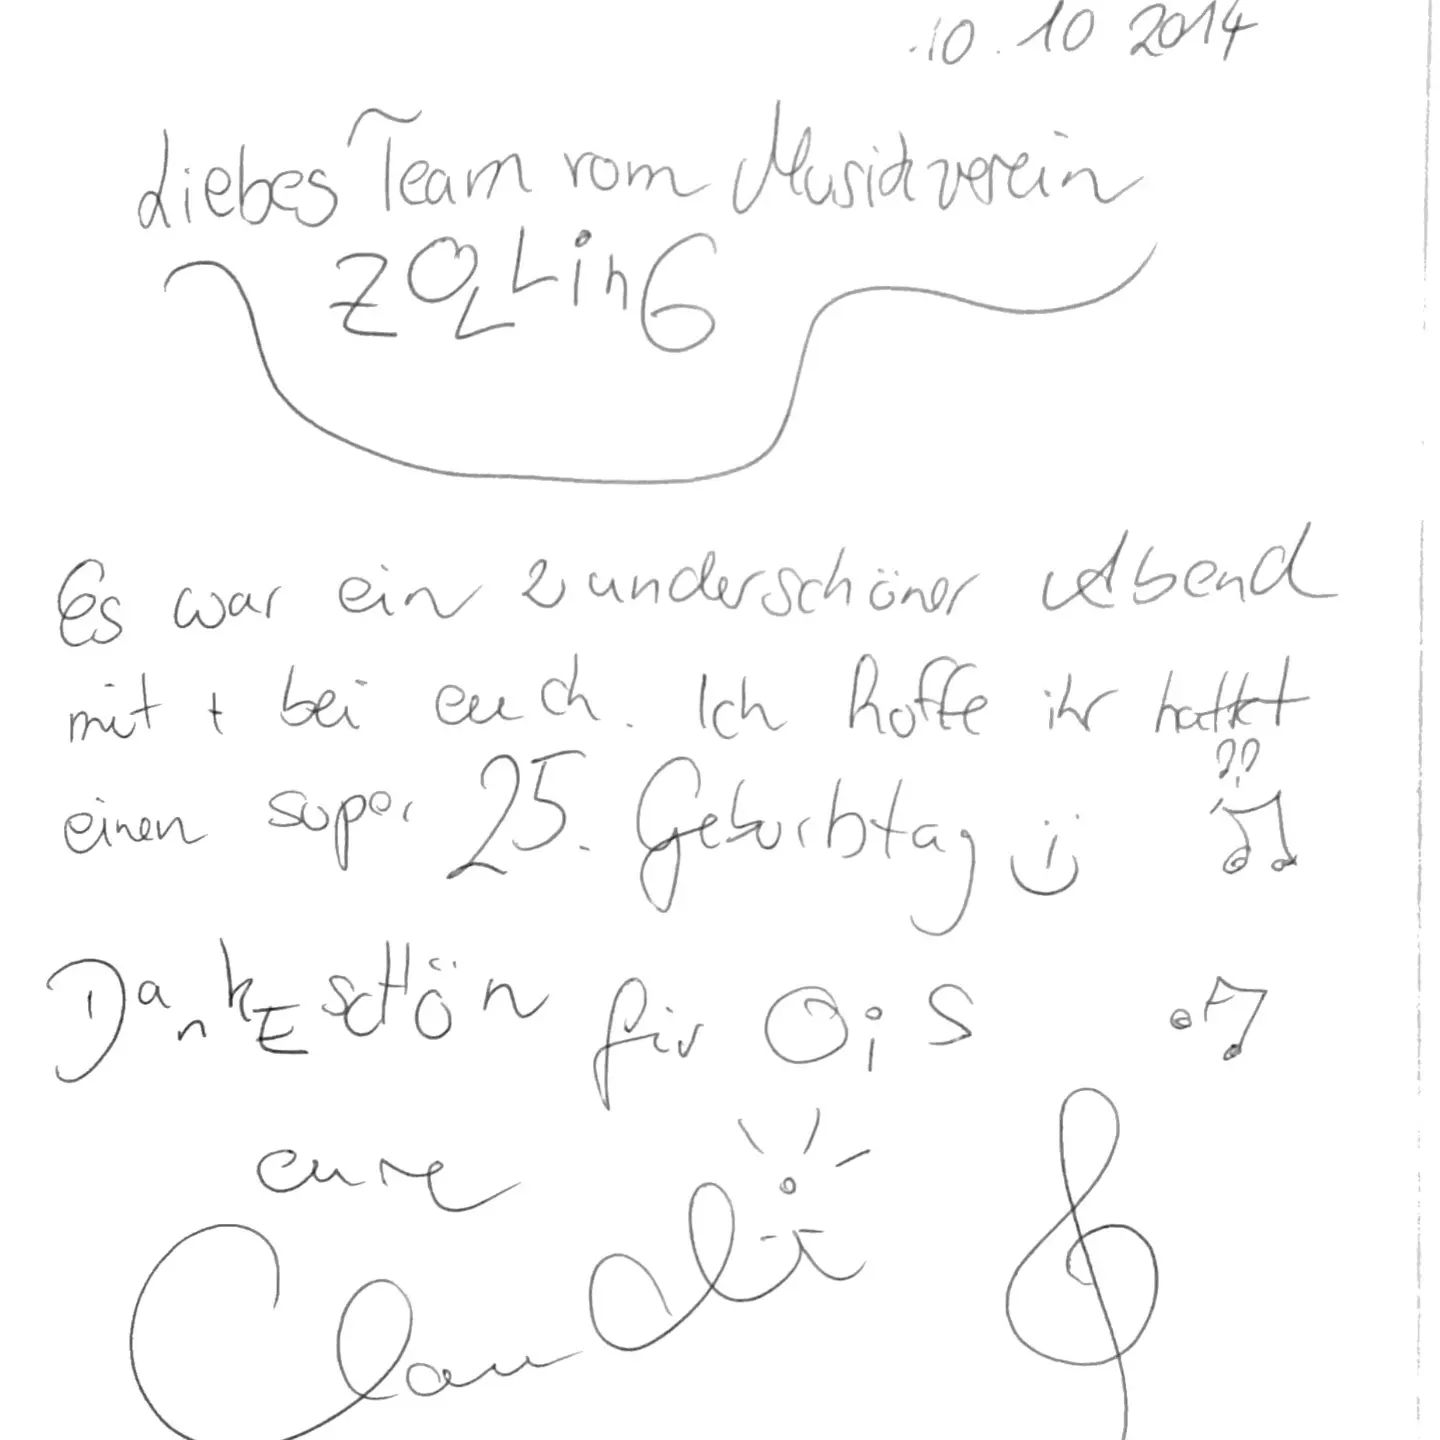 .10. 10 2014
Liebes Team vom Musikverein
ZOLLinG
Es war ein wunderschöner Abend
mit + bei euch. Ich hoffe ihr hattet
einen super 25. Geburtstag
DankEscHön für OiS
eure
Claudi